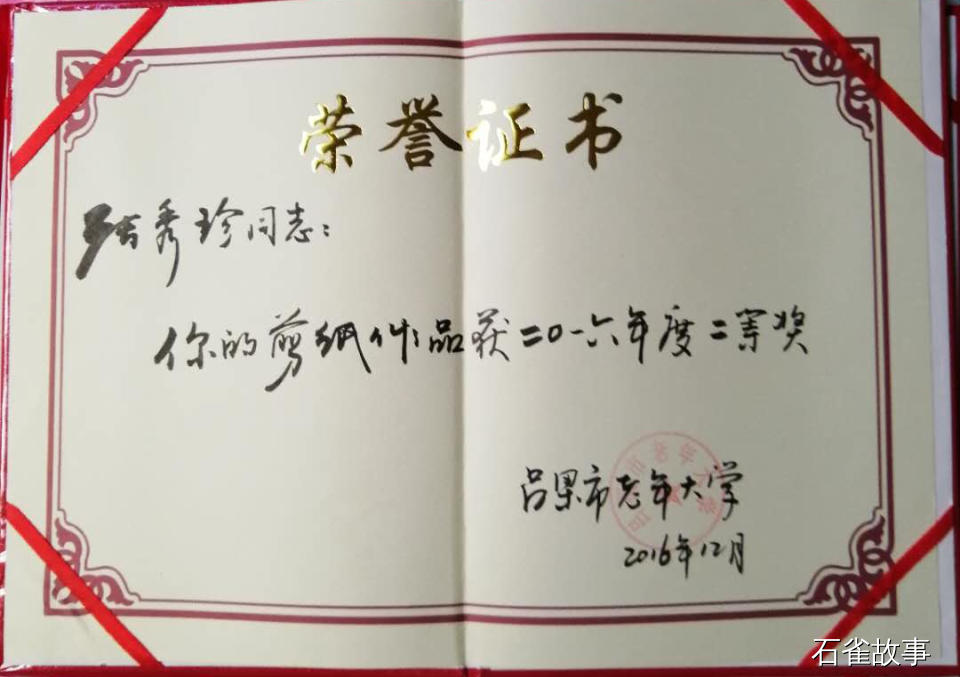 荣誉证书
张秀珍同志：
你的剪纸作品获二0一六年度二等奖
吕梁市老年大学
2016年12月
石雀故事